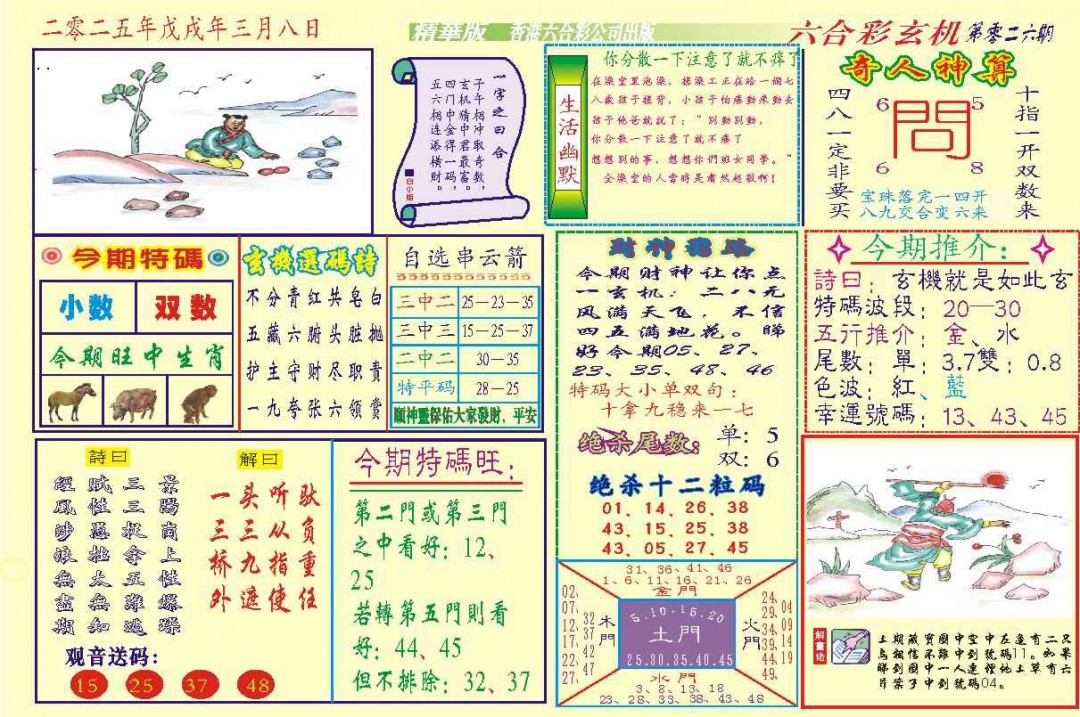 二零二五年戊戌年三月八日
精華版 香港六合彩公司出版
六合彩玄机 第零二六期
一字之曰合
子午猜冲取奇数
玄机中中君最富
四门相金得一码
五六相连添横财
白小姐
生活幽默
你分散一下注意了就不痒了
在澡堂里泡澡，搓澡工正在给一個七
八歲孩子搓背，小孩子怕癢動來動去
孩子他爸就說了：“別動別動，
你分散一下注意了就不癢了
想想別的事，想想你們班女同學。”
全澡堂的人當時是肅然起敬啊！
奇人神算
四八一定非要买
6 5
問
6 8
十指一开双数来
宝珠落定一四开
八九交合变六来
今期特碼
小数 双数
今期旺中生肖
玄機選碼詩
不分青红共皂白
五藏六腑头脏抛
护主守财尽职责
一九夸张六领赏
自选串云箭
三中二 25—23—35
三中三 15—25—37
二中二 30—35
特平码 28—25
順神靈保佑大家發財、平安
財神密路
今期财神让你点
一玄机：二八无
风满天飞，不信
四五满地花。睇
好今期05、27、
23、35、48、46
特码大小单双句：
十拿九稳来一七
绝杀尾数： 单：5
双：6
绝杀十二粒码
01、14、26、38
43、15、25、38
43、05、27、45
今期推介：
詩曰：玄機就是如此玄
特碼波段：20—30
五行推介：金、水
尾數：單：3.7雙：0.8
色波：紅、藍
幸運號碼：13、43、45
詩曰
景陽崗上性爆躁
三三杖拿五難逃
賦性愚拙太無知
經風涉浪無盡期
解曰
驮负重任
听从指使
头三九遮
一三桥外
观音送码：
15 25 37 48
今期特碼旺：
第二門或第三門
之中看好：12、
25
若轉第五門則看
好：44、45
但不排除：32、37
31、36、41、46
1、6、11、16、21、26
金門
02、07、12、17、22、27、
32、37、42、47
木門
5.10.15.20
土門
25.30.35.40.45
火門
24、29、34、39、44、49、
04、09、14、19
水門
3、8、13、18
23、28、33、38、43、48
解畫佬
上期藏寶圖中空中左邊有二只
鳥相信不難中到號碼11。如果
睇到圖中一人邊徑他上草有六
片葉子中到號碼04。